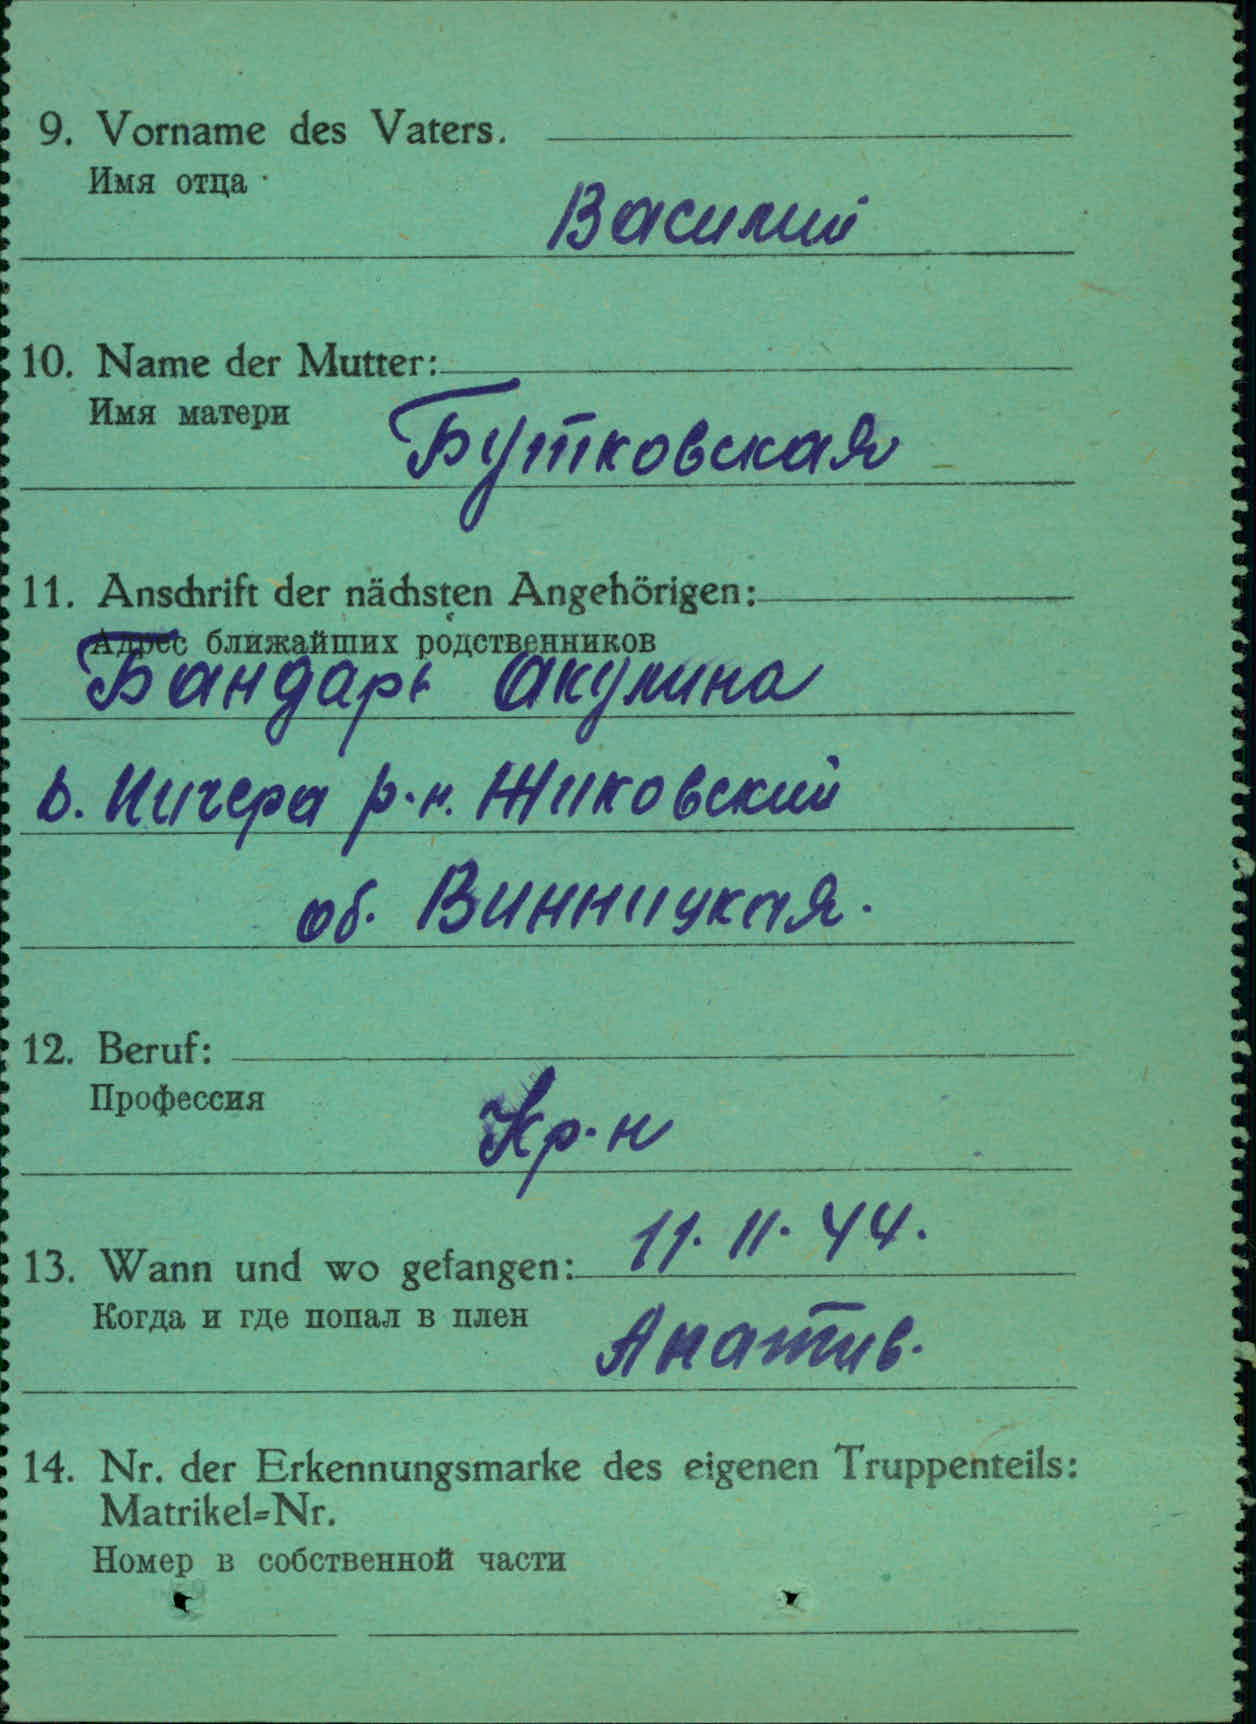 9. Vorname des Vaters.
Имя отца
Василий
10. Name der Mutter:
Имя матери
Бутковская
11. Anschrift der nächsten Angehörigen:
Адрес ближайших родственников
Бандарь Акулина
р.н. Жиковский
об. Винницкая.
12. Beruf:
Профессия
Кр-н
11. II. 44.
13. Wann und wo gefangen:
Когда и где попал в плен
14. Nr. der Erkennungsmarke des eigenen Truppenteils:
Matrikel=Nr.
Номер в собственной части